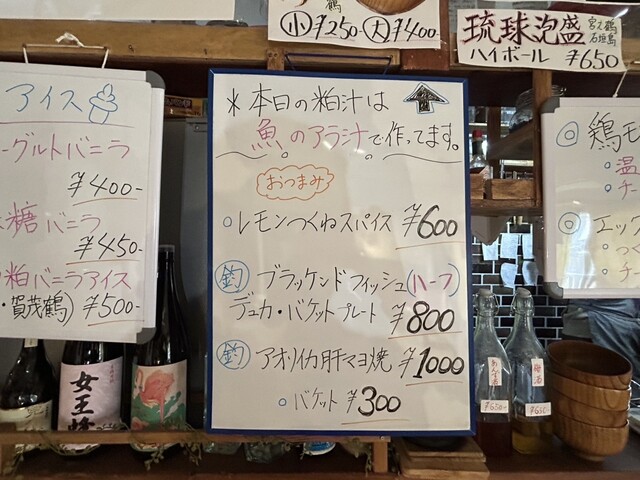 鶴
小 ¥250- 大 ¥400-
琉球泡盛 宮之鶴
石垣島
ハイボール ¥650
アイス
ーグルトバニラ
¥400-
糖バニラ
¥450-
粕バニラアイス
・賀茂鶴) ¥500-
*本日の粕汁は
魚のアラ汁で作ってます。
おつまみ
○レモンつくねスパイス ¥600
釣 ブラッケンドフィッシュ(ハーフ)
デュカ・バケットプレート ¥800
釣 アオリイカ肝マヨ焼 ¥1000
○バケット ¥300
◎鶏モ
・温
・チ
◎エッ
・つく
・チ
女王
¥650-
梅酒
¥650-